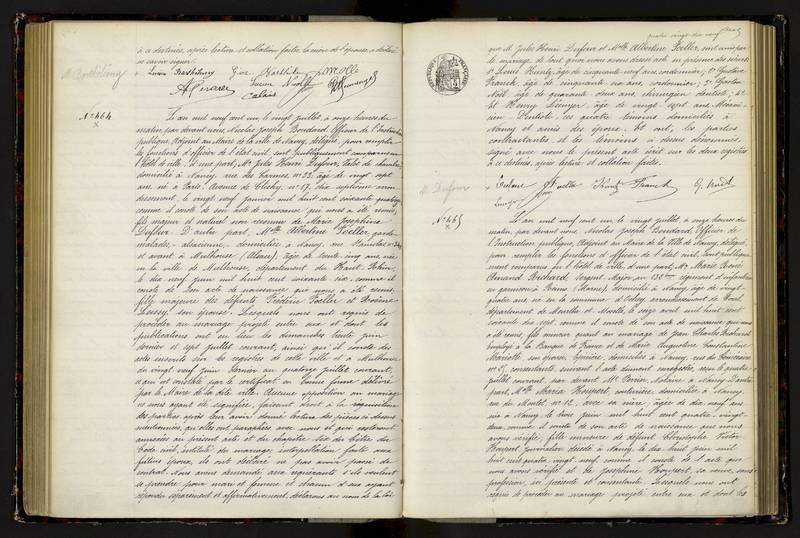 à ce destinés, après lecture et collation faites, la mère de l'épouse a déclaré
ne savoir signer.
Mr Barthélemy
Louis Barthélemy
Lucien
N° 464
L'an mil neuf cent un, le vingt juillet, à onze heures du
matin, par devant nous, Nicolas Joseph Boudard, Officier de l'Instruction
publique, Adjoint au Maire de la ville de Nancy, délégué, pour remplir
les fonctions d'officier de l'état civil, sont publiquement comparus en
l'hôtel de ville, d'une part, Mr Jules Henri Dufour, Valet de chambre
domicilié à Nancy, rue des Carmes, n° 33, âgé de vingt sept
ans, né à Paris, Avenue de Clichy, n° 17, dix septième arron-
dissement, le vingt neuf janvier mil huit cent soixante quatorze
comme il conste de son acte de naissance qui nous a été remis,
fils majeur et naturel non reconnu de Marie Joséphine
Dufour. D'autre part, Mlle Albertine Foeller, garde
malades, alsacienne, domiciliée à Nancy, rue Stanislas
et avant à Mulhouse (Alsace), âgée de trente cinq ans, née
en la ville de Mulhouse, département du Haut Rhin,
le dix neuf juin mil huit cent soixante six, comme il
conste de son acte de naissance qui nous a été remis,
fille majeure des défunts Frédéric Foeller et
son épouse. Lesquels nous ont requis de
procéder au mariage projeté entre eux et dont les
publications ont eu lieu les dimanches trente juin
dernier et sept juillet courant, ainsi qu'il conste des
actes inscrits sur les registres de cette ville et à Mulhouse
du vingt neuf juin dernier au quatorze juillet courant,
ce qui est constaté par le certificat en bonne forme délivré
par le Maire de la dite ville. Aucune opposition au mariage
ne nous ayant été signifiée, faisant droit à la réquisition
des parties, après leur avoir donné lecture des pièces ci dessus
mentionnées, qu'elles ont paraphées avec nous et qui resteront
annexées au présent acte et du chapitre six du titre du
Code civil, intitulé du mariage, interpellation faite aux
futurs époux, ils ont déclaré ne pas avoir passé de
contrat. Nous avons demandé aux requérants s'ils veulent
se prendre pour mari et femme et chacun d'eux ayant
répondu séparément et affirmativement, déclarons au nom de la loi
quatre vingt dix neuf
que M. Jules Henri Dufour et Mlle Albertine Foeller, sont unis par
le mariage, de tout quoi nous avons dressé acte en présence des sieurs
1° Louis Kuntz, âgé de cinquante neuf ans, cordonnier; 2° Gustave
Franck, âgé de cinquante six ans, cordonnier; 3° Gaston
Noël, âgé de quarante deux ans, chirurgien dentiste; 4°
et Henry âgé de vingt sept ans, Mécani-
cien Dentiste; ces quatre témoins domiciliés à
Nancy et amis des époux. Et ont, les parties
contractantes et les témoins ci dessus dénommés,
signé avec nous le présent acte écrit sur les deux registres
à ce destinés, après lecture et collation faites.
Mr Dufour
Dufour Foeller Kuntz Franck
N° 465
L'an mil neuf cent un, le vingt juillet à onze heures du
matin, par devant nous, Nicolas Joseph Boudard, Officier de
l'Instruction publique, Adjoint au Maire de la Ville de Nancy, délégué,
pour remplir les fonctions d'officier de l'état civil, sont publique-
ment comparus en l'hôtel de ville, d'une part, Mr Marie René
Armand Sergent Major au 132ème régiment d'infanterie
en garnison à Reims (Marne), domicilié à Nancy, âgé de vingt
quatre ans, né en la commune d' arrondissement de Toul,
département de Meurthe et Moselle, le onze avril mil huit cent
soixante dix sept, comme il conste de son acte de naissance qui nous
a été remis, fils mineur quant au mariage de Jean Charles
employé à la Banque de France et de Marie Augustine Constantine
Mariotte son épouse, domiciliés à Nancy, rue
n° 5, consentants, suivant acte dûment enregistré, reçu le quatre
juillet courant, par devant Me Perrin, Notaire à Nancy. D'autre
part, Mlle Marie couturière, domiciliée à Nancy,
n° 12, avec sa mère, âgée de dix neuf ans,
née à Nancy, le trois juin mil huit cent quatre-vingt-
deux, comme il conste de son acte de naissance que nous
avons vérifié, fille mineure de défunt Christophe Victor
décédé à Nancy, le dix huit juin mil
huit cent quatre vingt neuf, comme il conste de l'acte que
nous avons vérifié et de Joséphine sa veuve, sans
profession, ici présente et consentante. Lesquels nous ont
requis de procéder au mariage projeté entre eux et dont les